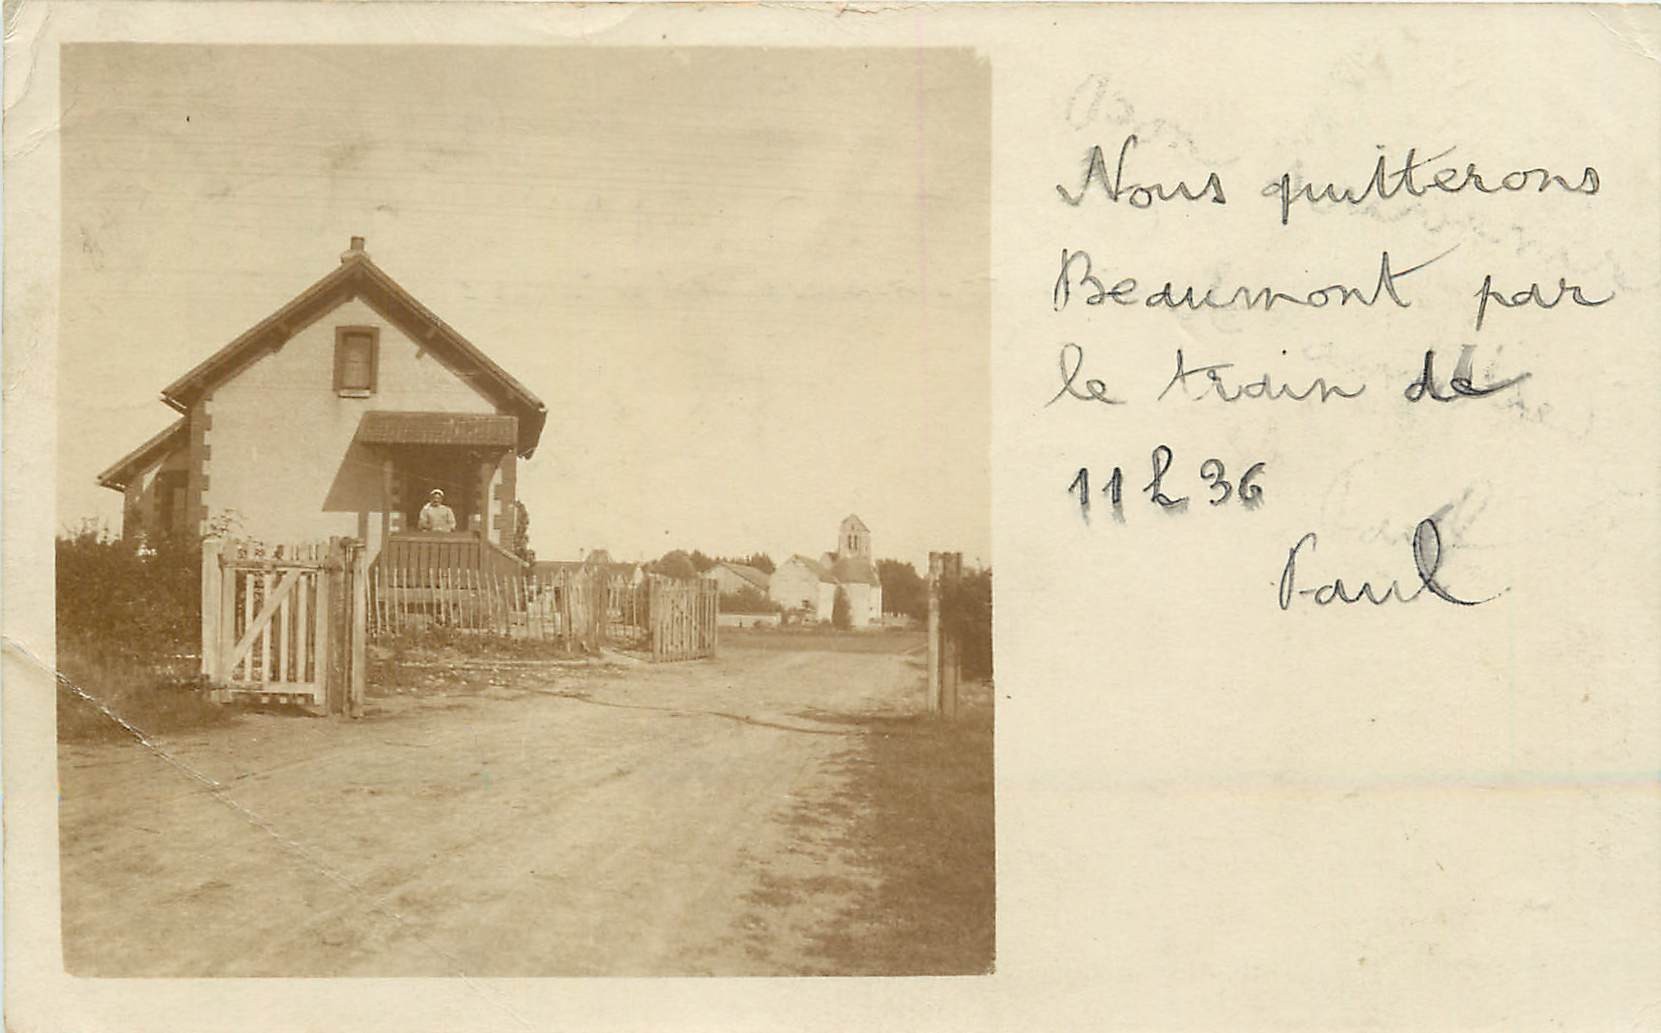 Nous quitterons
Beaumont par
le train de
11h36
Paul